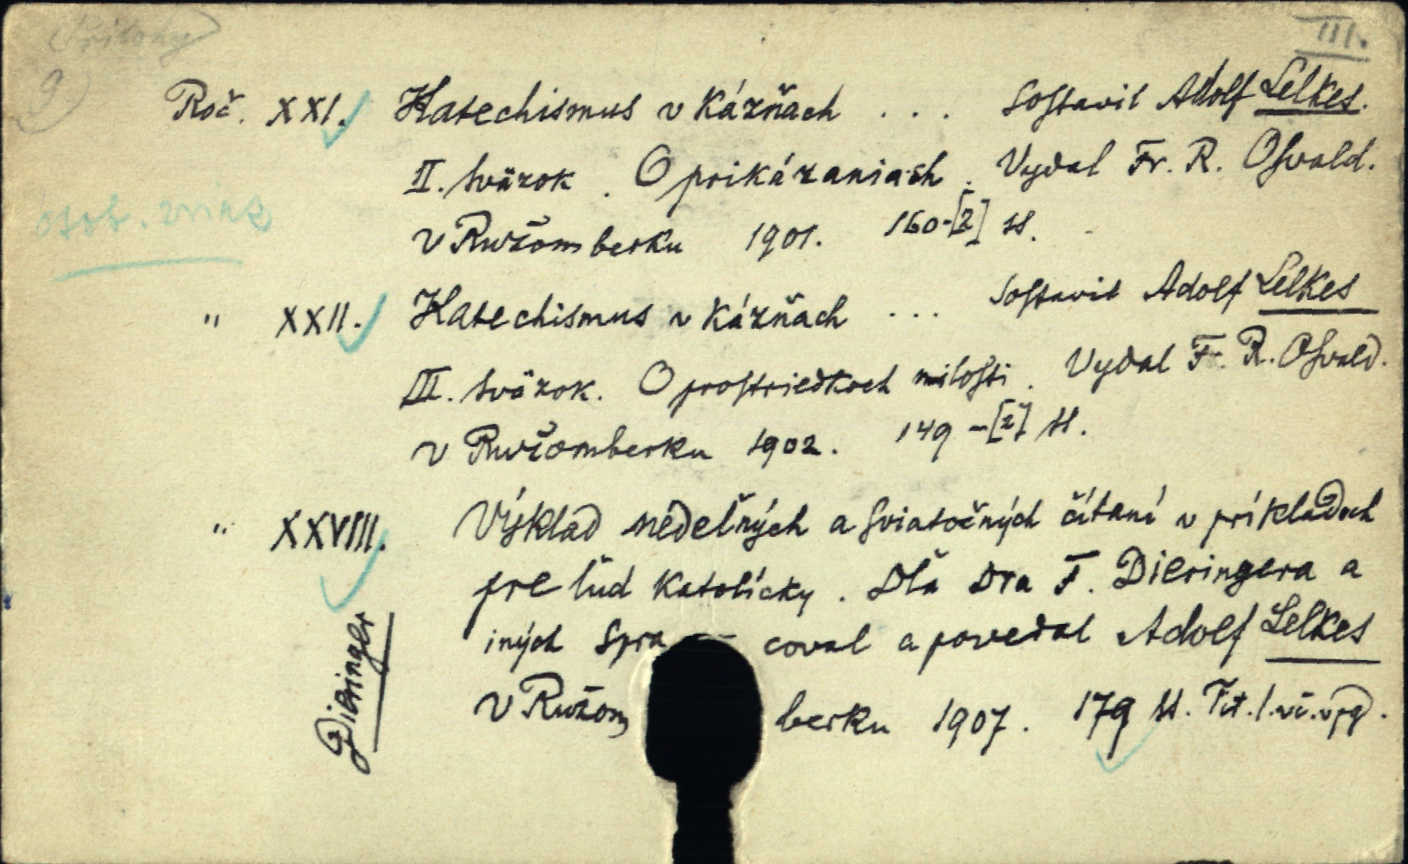 Prílohy
III.
9.)
Roč. XXI. Katechismus v kázňach ... sostavil Adolf Lelkes.
II. sväzok. O prikázaniach. Vydal Fr. R. Osvald.
v Ružomberku 1901. 160-[2] s.
osob. zvink
" XXII. Katechismus v kázňach ... sostavil Adolf Lelkes
III. sväzok. O prostriedkoch milosti. Vydal Fr. R. Osvald.
v Ružomberku 1902. 149-[2] s.
" XXVIII. Výklad nedeľných a sviatočných čítaní v príkladoch
pre ľud katolícky. Dľa Dra F. Dieringera a
iných spra- coval a povedal Adolf Lelkes
v Ružom berku 1907. 179 s. Tit. l.
Dieringer